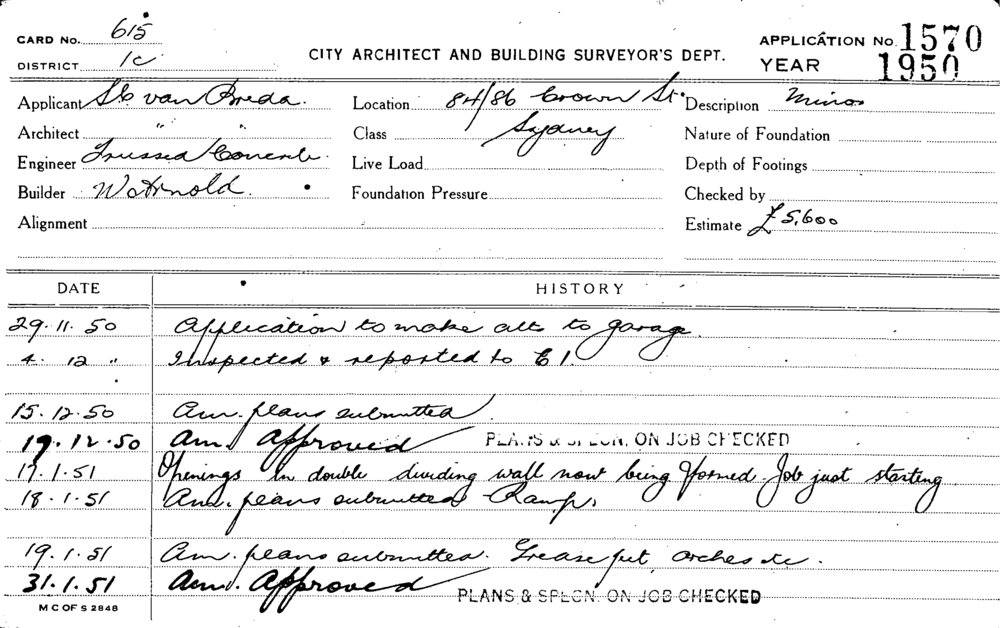 CARD No. 615
DISTRICT 1c
CITY ARCHITECT AND BUILDING SURVEYOR'S DEPT.
APPLICATION No. 1570
YEAR 1950
Applicant van Breda.
Location 84/86 Crown St.
Description Minor
Architect " "
Class Sydney
Nature of Foundation
Engineer Trussed Concrete
Live Load
Depth of Footings
Builder W Arnold.
Foundation Pressure
Checked by
Alignment
Estimate £5,600
DATE HISTORY
29.11.50 Application to make alts to garage.
4. 12 " Inspected & reported to C1.
15.12.50 Am. plans submitted
19.12.50 Am. Approved PLANS & SPECN. ON JOB CHECKED
17.1.51 Openings in double dividing wall now being formed. Job just starting
18.1.51 Am. plans submitted Ramp.
19.1.51 Am. plans submitted. Grease pit, arches etc.
31.1.51 Am. Approved PLANS & SPECN. ON JOB CHECKED
M C OF S 2848